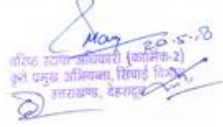 20.5.8
वरिष्ठ स्टाफ अधिकारी (कार्मिक-2)
कृते प्रमुख अभियन्ता, सिंचाई विभाग
उत्तराखण्ड, देहरादून